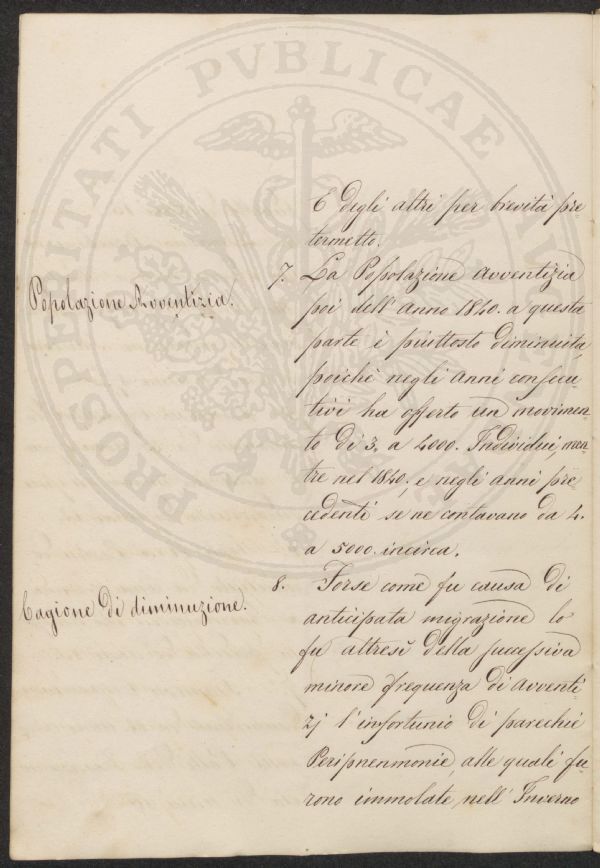 PROSPERITATI PVBLICAE AV
E degli altri per brevità pre
termetto.
Popolazione Avventizia.
7. La Popolazione avventizia
poi dell' anno 1840. a questa
parte è piuttosto diminuita,
poichè negli anni consecu
tivi ha offerto un movimen
to di 3. a 4000. Individui, men
tre nel 1840., e negli anni pre
cedenti se ne contavano da 4.
a 5000. incirca.
Cagione di diminuzione.
8. Forse come fu causa di
anticipata migrazione lo
fu altresì della successiva
minore frequenza di avventi
zj l'infortunio di parecchie
Peripneumonie, alle quali fu
rono immolate, nell' Inverno